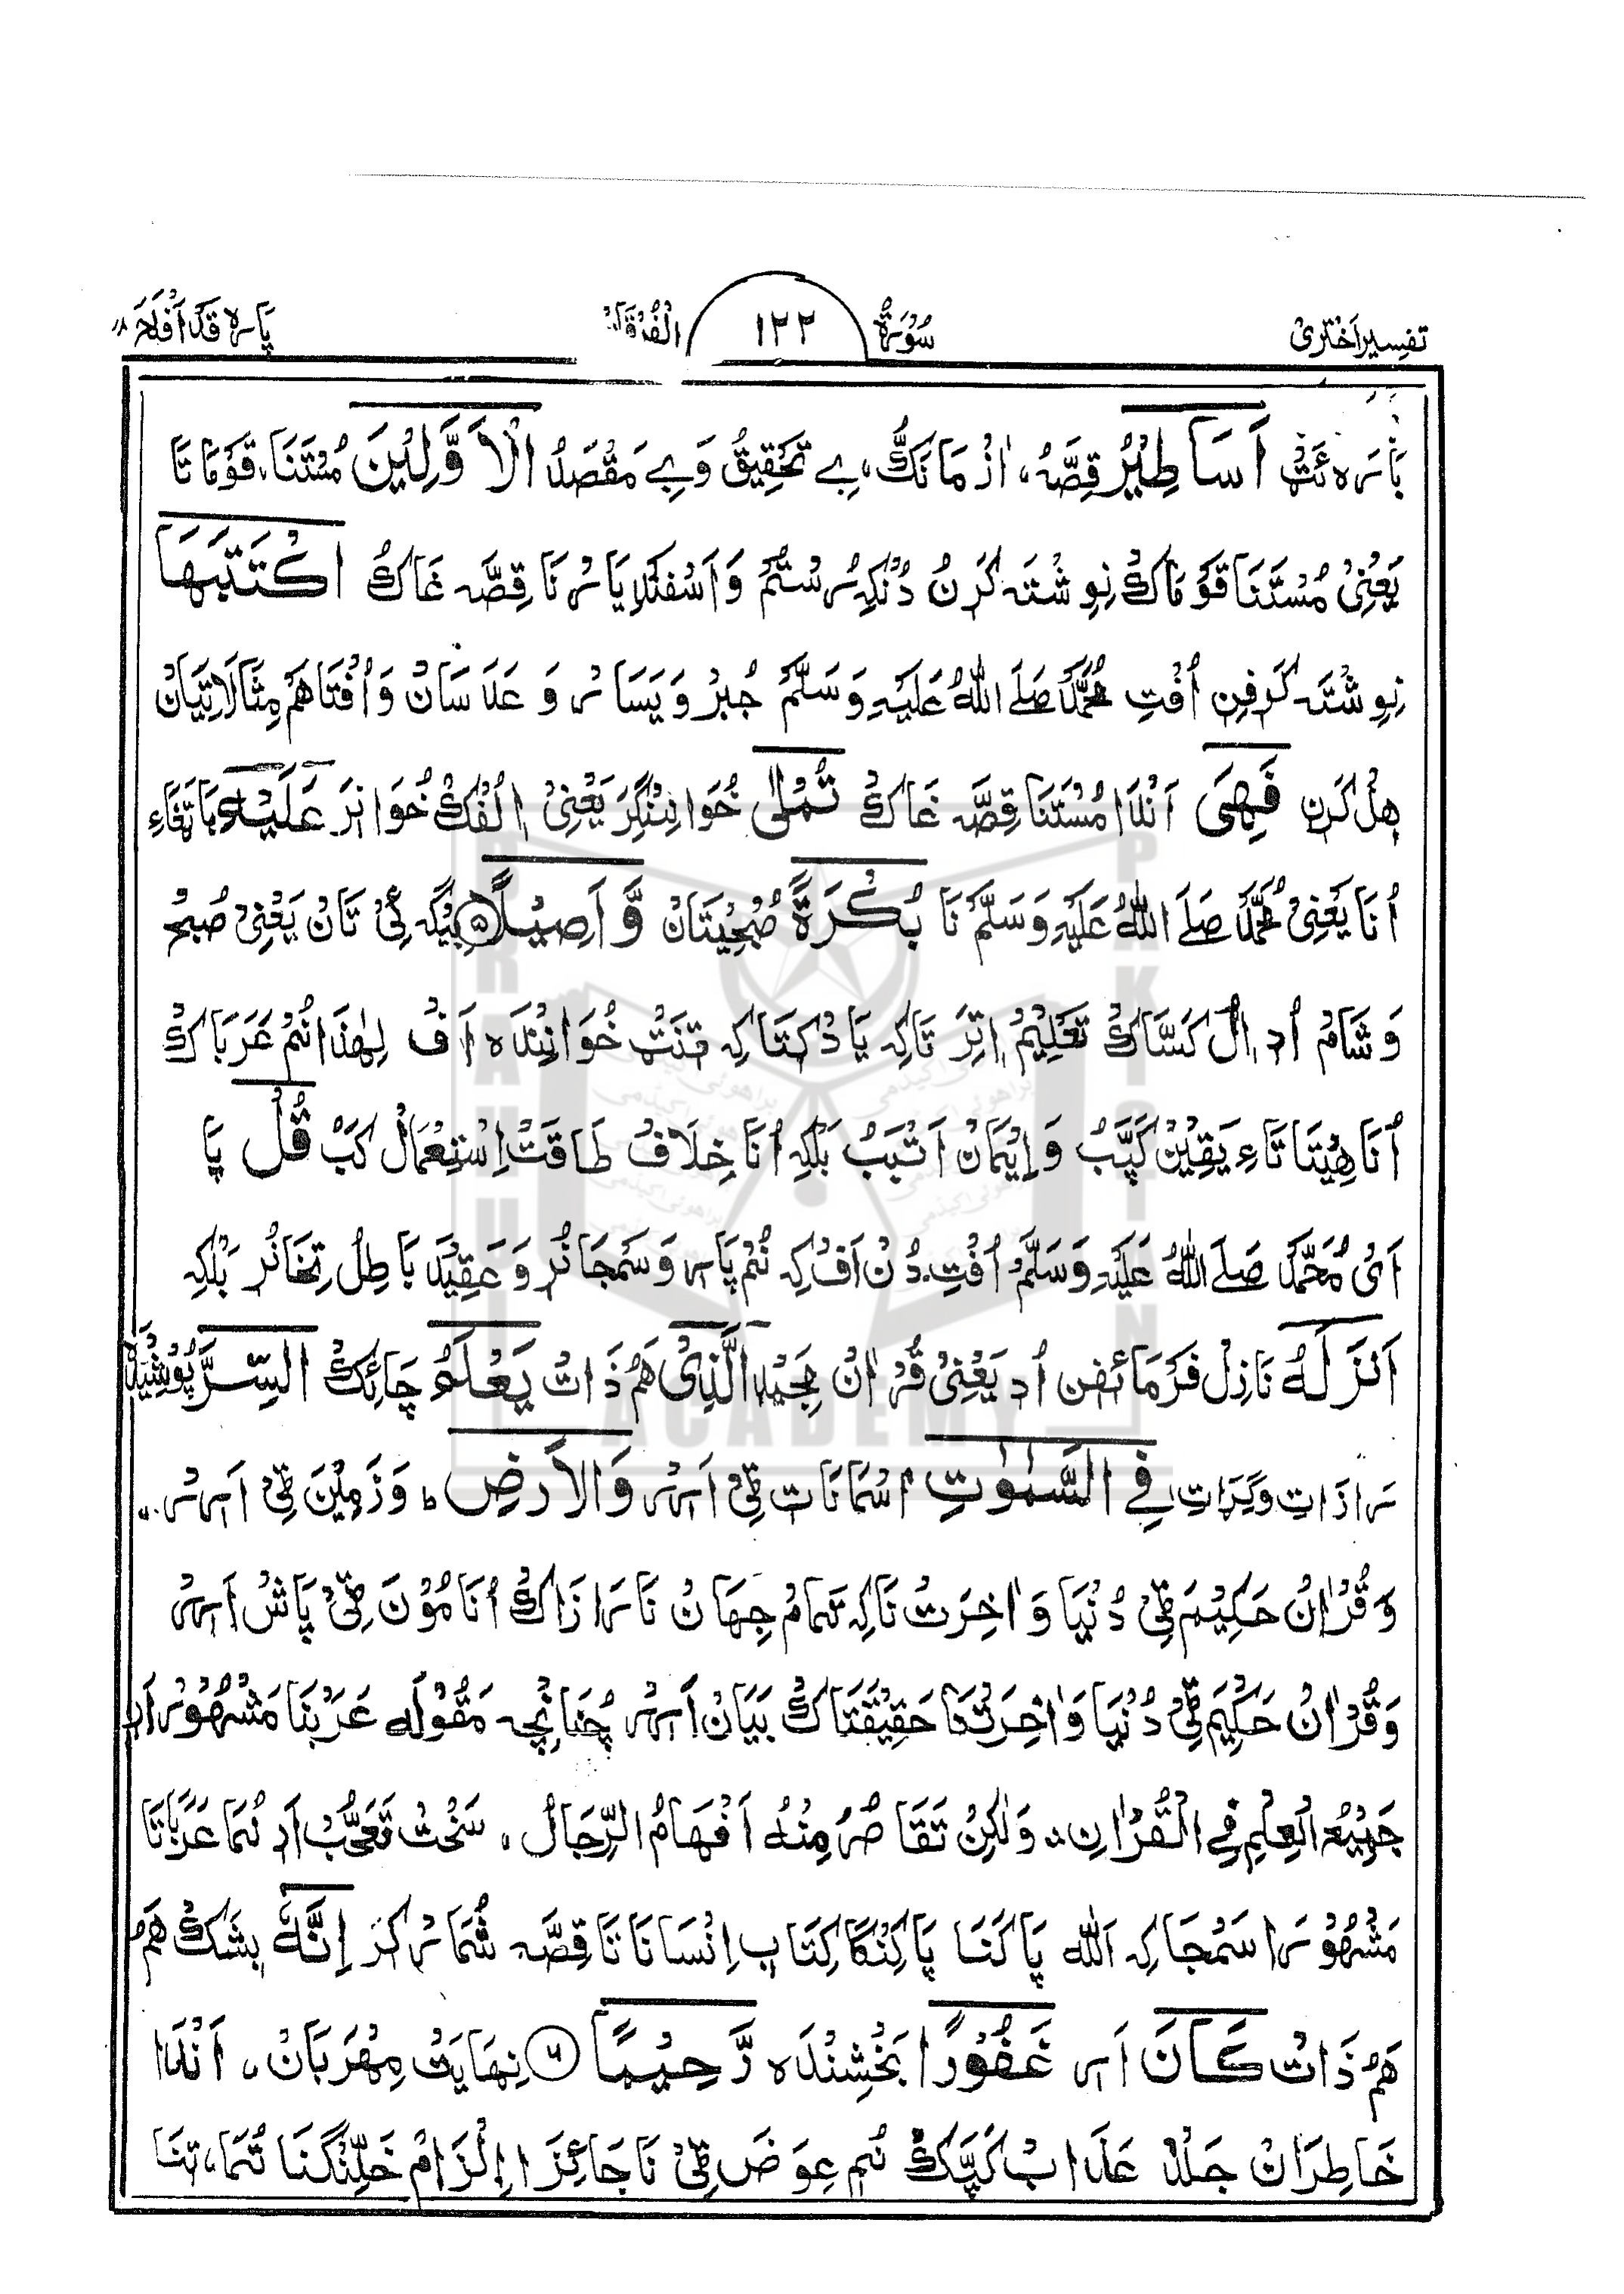 تفسیر اختری سُوۡرَۃُ ۱۲۲ الۡفُرۡقَان پارہ قَدۡ اَفۡلَحَ ۱۸
اَسَاطِیۡرُ قِصَّہُ، بے تَحۡقِیۡقُ وَبے مَقۡصَدُ الۡاَوَّلِیۡنَ مُسۡتَنَا، قَوۡمَاتَا
یَعۡنِیۡ مُسۡتَنَا قَوۡمَاکۡ نِوِشۡتَہ کَرَنُ دُنۡکِہ رُسۡتُمۡ وَاَسۡفَنۡدِیَارۡنَا قِصَّہ غَاکۡ اکۡتَتَبَهَا
نِوِشۡتَہ کَرِفِن اُفۡتِ مُحَمَّدۡ صَلَے اللّٰہُ عَلَیۡہِ وَسَلَّمۡ جُبَرۡ وَیَسَارۡ وَ عَدَاسَانۡ وَ اُفۡتَا هَمۡ مِثَالَاتِیَانۡ
هِلۡ کَرِن فَهِیَ اَنۡدَا مُسۡتَنَا قِصَّہ غَاکۡ تُمۡلٰی خُوَانِنۡگِرَ یَعۡنِیۡ اُلۡفُکۡ خُوَانِرَ عَلَیۡہِ بَاتَغَاءِ
اُنَا یَعۡنِیۡ مُحَمَّدۡ صَلَے اللّٰہُ عَلَیۡہِ وَسَلَّمۡ نَا بُکۡرَةً صُبۡحِیۡتَانۡ وَّاَصِیۡلًا ۵ بِیۡگَہ ئِیۡ تَانۡ یَعۡنِیۡ صُبۡحۡ
وَ شَامۡ اُدِ اُلۡ کَسَّاکۡ تَعۡلِیۡمۡ اِتِرَ تَاکِہ یَادۡ کَتَا کِہ تِنَتۡ خُوَانِنۡدَہ اَفۡ لِهٰذَا نُمۡ عَرَبَاکۡ
اُنَا هِیۡتَاتَاءِ یَقِیۡنۡ کَپَّبۡ وَاِیۡمَانۡ اَتۡبَبۡ بَلۡکِہ اُنَا خِلَافۡ طَاقَتۡ اِسۡتِعۡمَالۡ کَبۡ قُلۡ پَا
اَیۡ مُحَمَّدۡ صَلَے اللّٰہُ عَلَیۡہِ وَسَلَّمۡ اُفۡتِ. دُنۡ اَفۡ کِہ نُمۡ پَارِ وَسَمۡجَانُرِ وَعَقِیۡدَہ بَاطِلۡ تِخَانُرِ بَلۡکِہ
اَنۡزَلَہُ نَازِلۡ فَرۡمَائِفِن اُدِ یَعۡنِیۡ قُرۡاٰنُ مَجِیۡد الَّذِیۡ هَمۡ ذَاتۡ یَعۡلَمُ چَائِکۡ السِّرَّ پُوۡشِیۡدَہ
رَازَاتِ وَگِرَاتِ فِے السَّمٰوٰتِ اسۡمَانَاتِ ٹِیۡ اَرۡ وَالۡاَرۡضِ ط وَزَمِیۡنَ ٹِیۡ اَرۡ..
وَ قُرۡاٰنُ حَکِیۡمَ ٹِیۡ دُنۡیَا وَ اٰخِرَتۡ نَاکِہ تَمَامۡ جِهَانۡ نَا رَازَاکۡ اُنَا مُوۡنَ ٹِیۡ پَاشۡ اَرۡ
وَ قُرۡاٰنُ حَکِیۡمَ ٹِیۡ دُنۡیَا وَ اٰخِرَتۡ نَا حَقِیۡقَتَاکۡ بَیَانۡ اَرۡ چُنَانۡچِہ مَقُوۡلَہ عَرَبۡنَا مَشۡهُوۡرۡ اَرِ
جَمِیۡعُ الۡعِلۡمِ فِے الۡقُرۡاٰنِ: وَلٰکِنۡ تَقَاصُرُ مِنۡہُ اَفۡهَامُ الرِّجَالُ، سَخۡتۡ تَعَجُّبۡ اَرِ نُمَا عَرَبَاتَا
مَشۡهُوۡرَ اسَمۡجَا کِہ اَللّٰہ پَاکَنَا پَاکِنۡگَا کِتَابِ اِنۡسَانَاتَا قِصَّہ شُمَارۡ کَرَ اِنَّہٗ بِشَکۡ هَمۡ
هَمۡ ذَاتۡ کَانَ اَرِ غَفُوۡرًا بَخۡشِنۡدَہ رَّحِیۡمًا ۶ نِهَایَتۡ مِهۡرَبَانۡ، اَنۡدَا
خَاطِرَانۡ جَلۡدۡ عَذَابۡ کَپَّکۡ نُمۡ عِوَضَ ٹِیۡ نَاجَائِزَا اِلۡزَامۡ خَلِّنۡگَنَا نُمَا، تِنَا